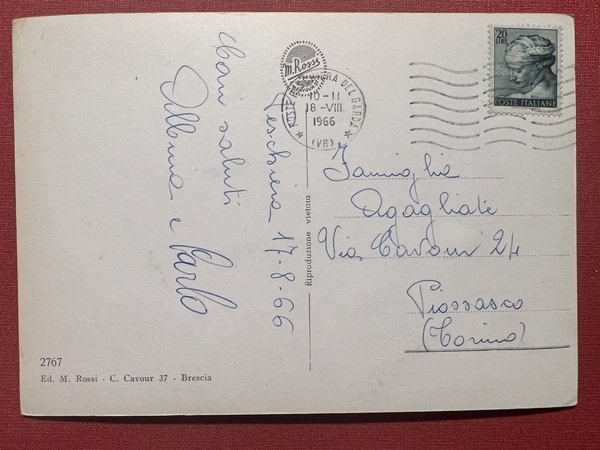 Cari saluti
Albina e Carlo
Peschiera 17-8-66
M. Rossi
POSTE PESCHIERA DEL GARDA
10-11
18-VIII
1966
(VR)
20
LIRE
POSTE ITALIANE
Famiglia
Agagliate
Via Cavour 24
Piossasco
(Torino)
Riproduzione vietata
2767
Ed. M. Rossi - C. Cavour 37 - Brescia